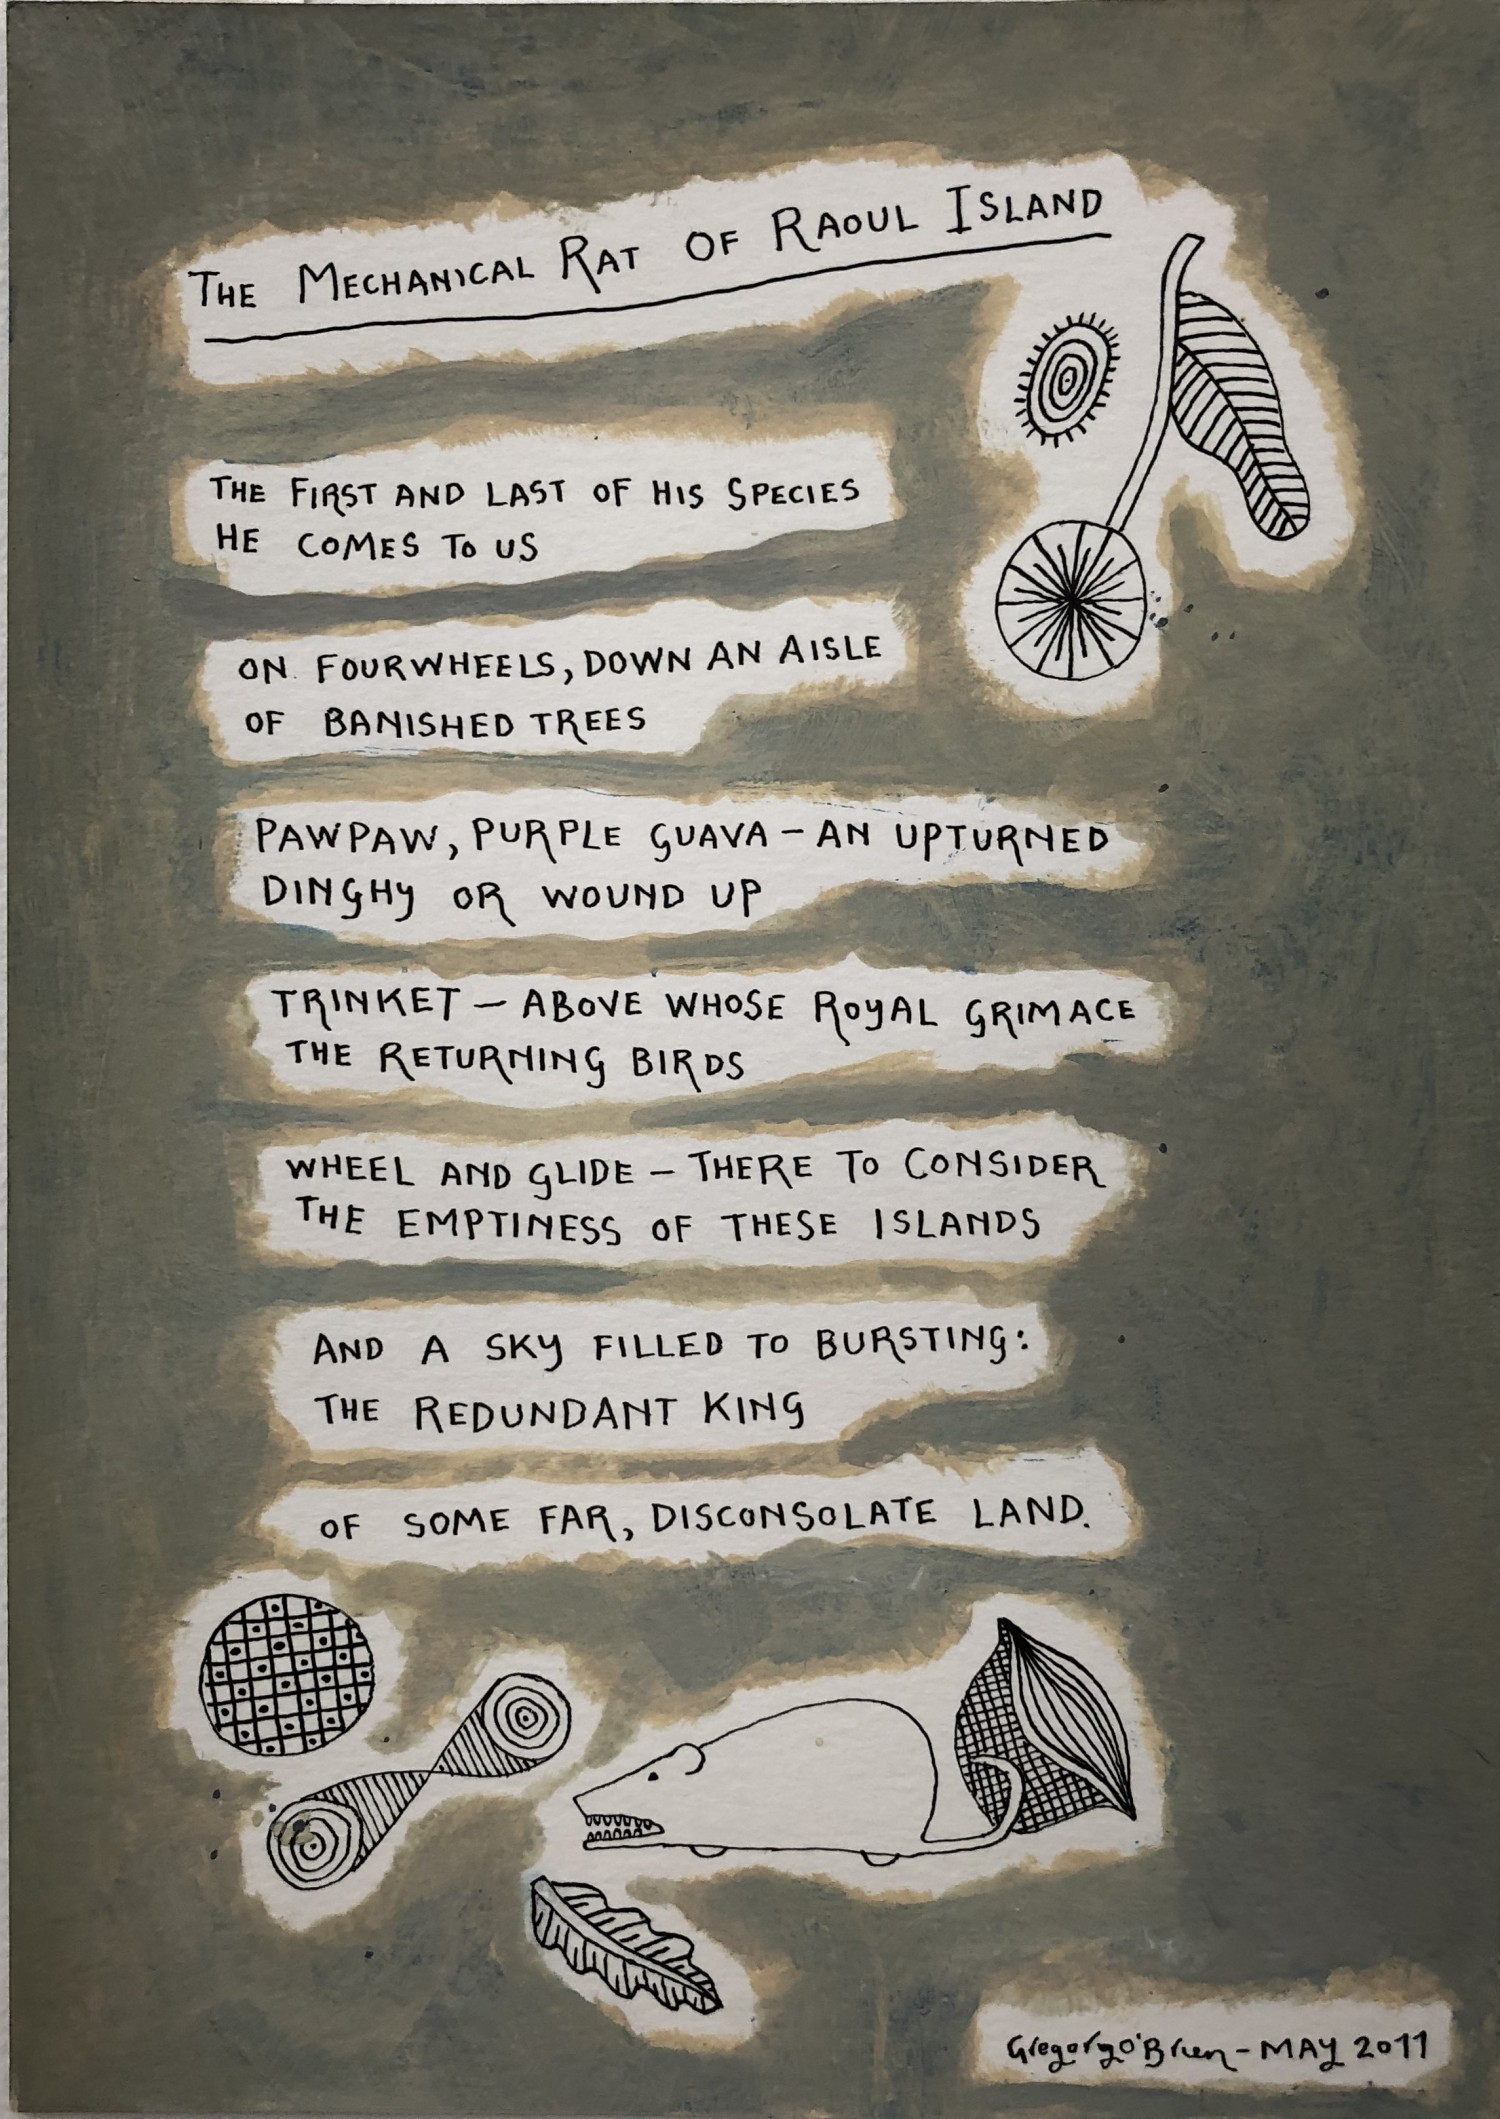 THE MECHANICAL RAT OF RAOUL ISLAND
THE FIRST AND LAST OF HIS SPECIES
HE COMES TO US
ON FOURWHEELS, DOWN AN AISLE
OF BANISHED TREES
PAWPAW, PURPLE GUAVA – AN UPTURNED
DINGHY OR WOUND UP
TRINKET – ABOVE WHOSE ROYAL GRIMACE
THE RETURNING BIRDS
WHEEL AND GLIDE – THERE TO CONSIDER
THE EMPTINESS OF THESE ISLANDS
AND A SKY FILLED TO BURSTING:
THE REDUNDANT KING
OF SOME FAR, DISCONSOLATE LAND.
Gregory O'Brien – MAY 2011